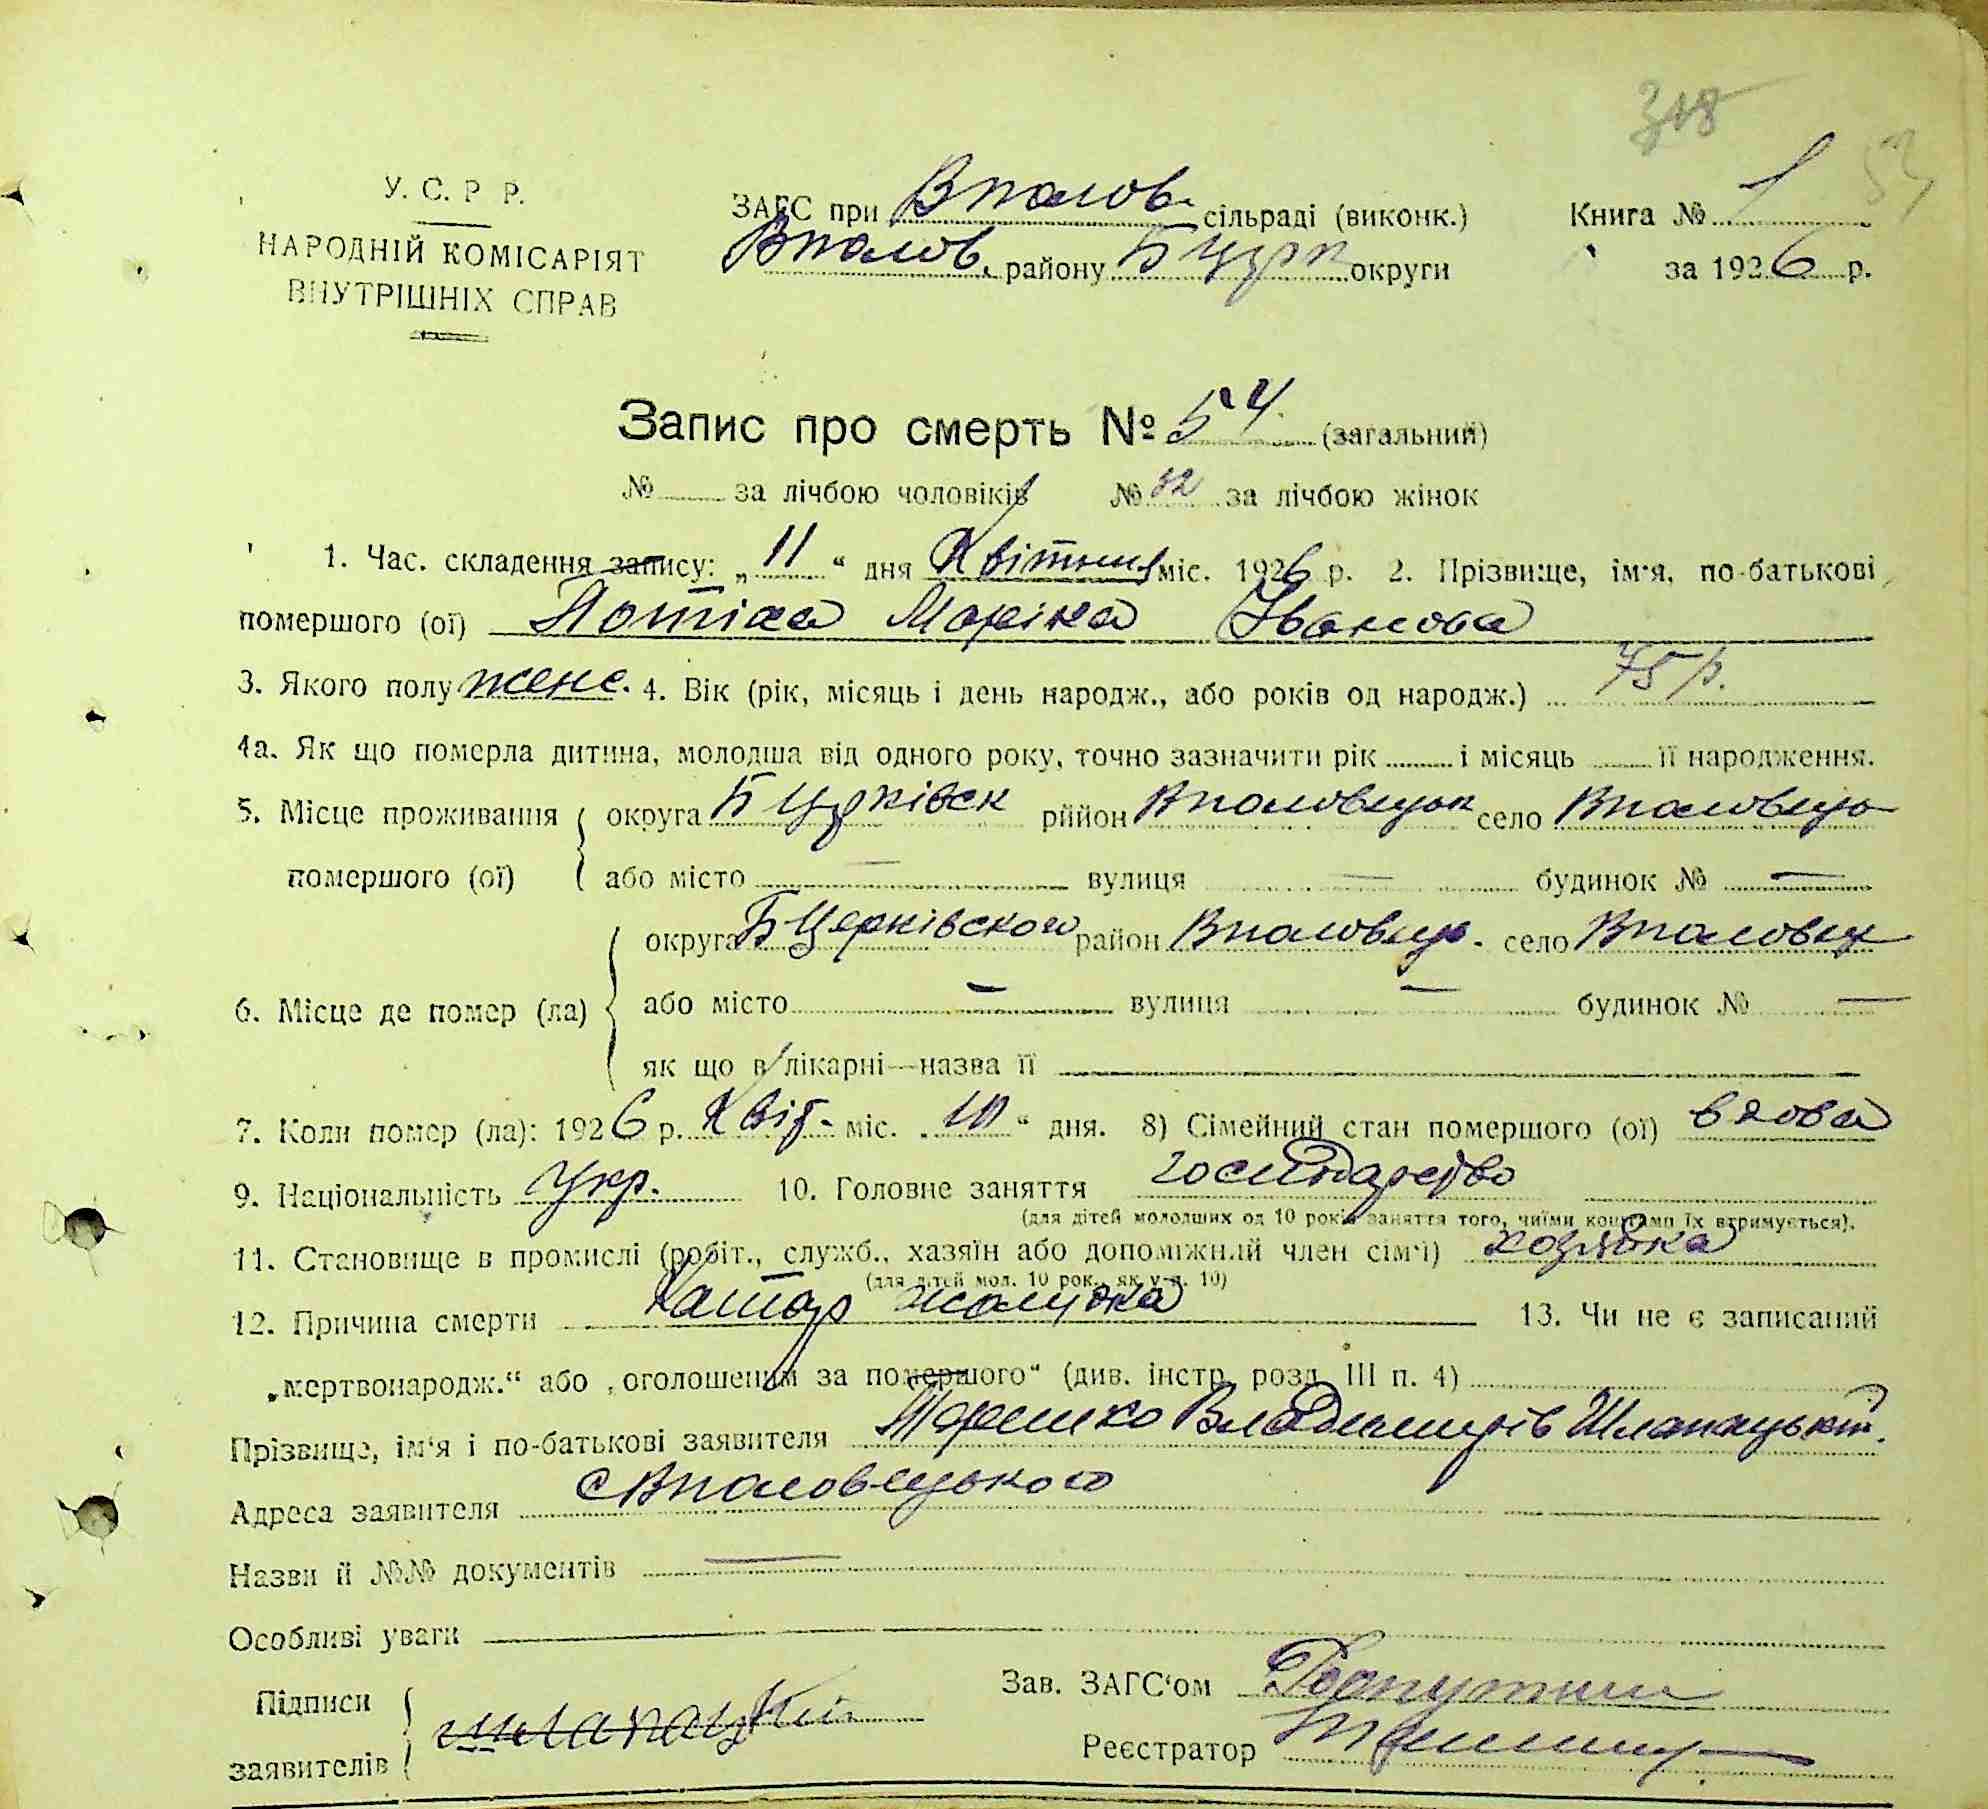 318
54
У. С. Р. Р.
НАРОДНІЙ КОМІСАРІЯТ
ВНУТРІШНІХ СПРАВ
ЗАГС при Вполов. сільраді (виконк.)
Вполов. району БЦерк округи
Книга № 1
за 1926 р.
Запис про смерть № 54 (загальний)
№ за лічбою чоловіків № 32 за лічбою жінок
1. Час. складення запису: „ 11 “ дня Квітня міс. 1926 р. 2. Прізвище, ім'я, по-батькові
помершого (ої) Потіха Маріка Іванова
3. Якого полу женс. 4. Вік (рік, місяць і день народж., або років од народж.) 75 р.
4а. Як що померла дитина, молодша від одного року, точно зазначити рік і місяць її народження.
5. Місце проживання округа БЦерківск рійон Вполовецьк село Вполовецьк
помершого (ої) або місто — вулиця — будинок № —
округа БЦерківского район Вполовец. село Вполовец
6. Місце де помер (ла) або місто — вулиця — будинок № —
як що в лікарні—назва її
7. Коли помер (ла): 1926 р. Квіт. міс. „ 10 “ дня. 8) Сімейний стан помершого (ої) вдова
9. Національність Укр. 10. Головне заняття госпдарство
(для дітей молодших од 10 років заняття того, чиїми коштами їх втримується).
11. Становище в промислі (робіт., служб., хазяїн або допоміжний член сім'ї) хозяйка
(для дітей мол. 10 рок., як у п. 10)
12. Причина смерти Катар жолудка 13. Чи не є записаний
„мертвонародж.“ або „оголошеним за помершого“ (див. інстр. розд. III п. 4)
Прізвище, ім'я і по-батькові заявителя Терешко Владимирів Шлапацький.
Адреса заявителя с Вполовецького
Назви й №№ документів —
Особливі уваги
Підписи
заявителів шлапацкий
Зав. ЗАГС'ом
Реєстратор